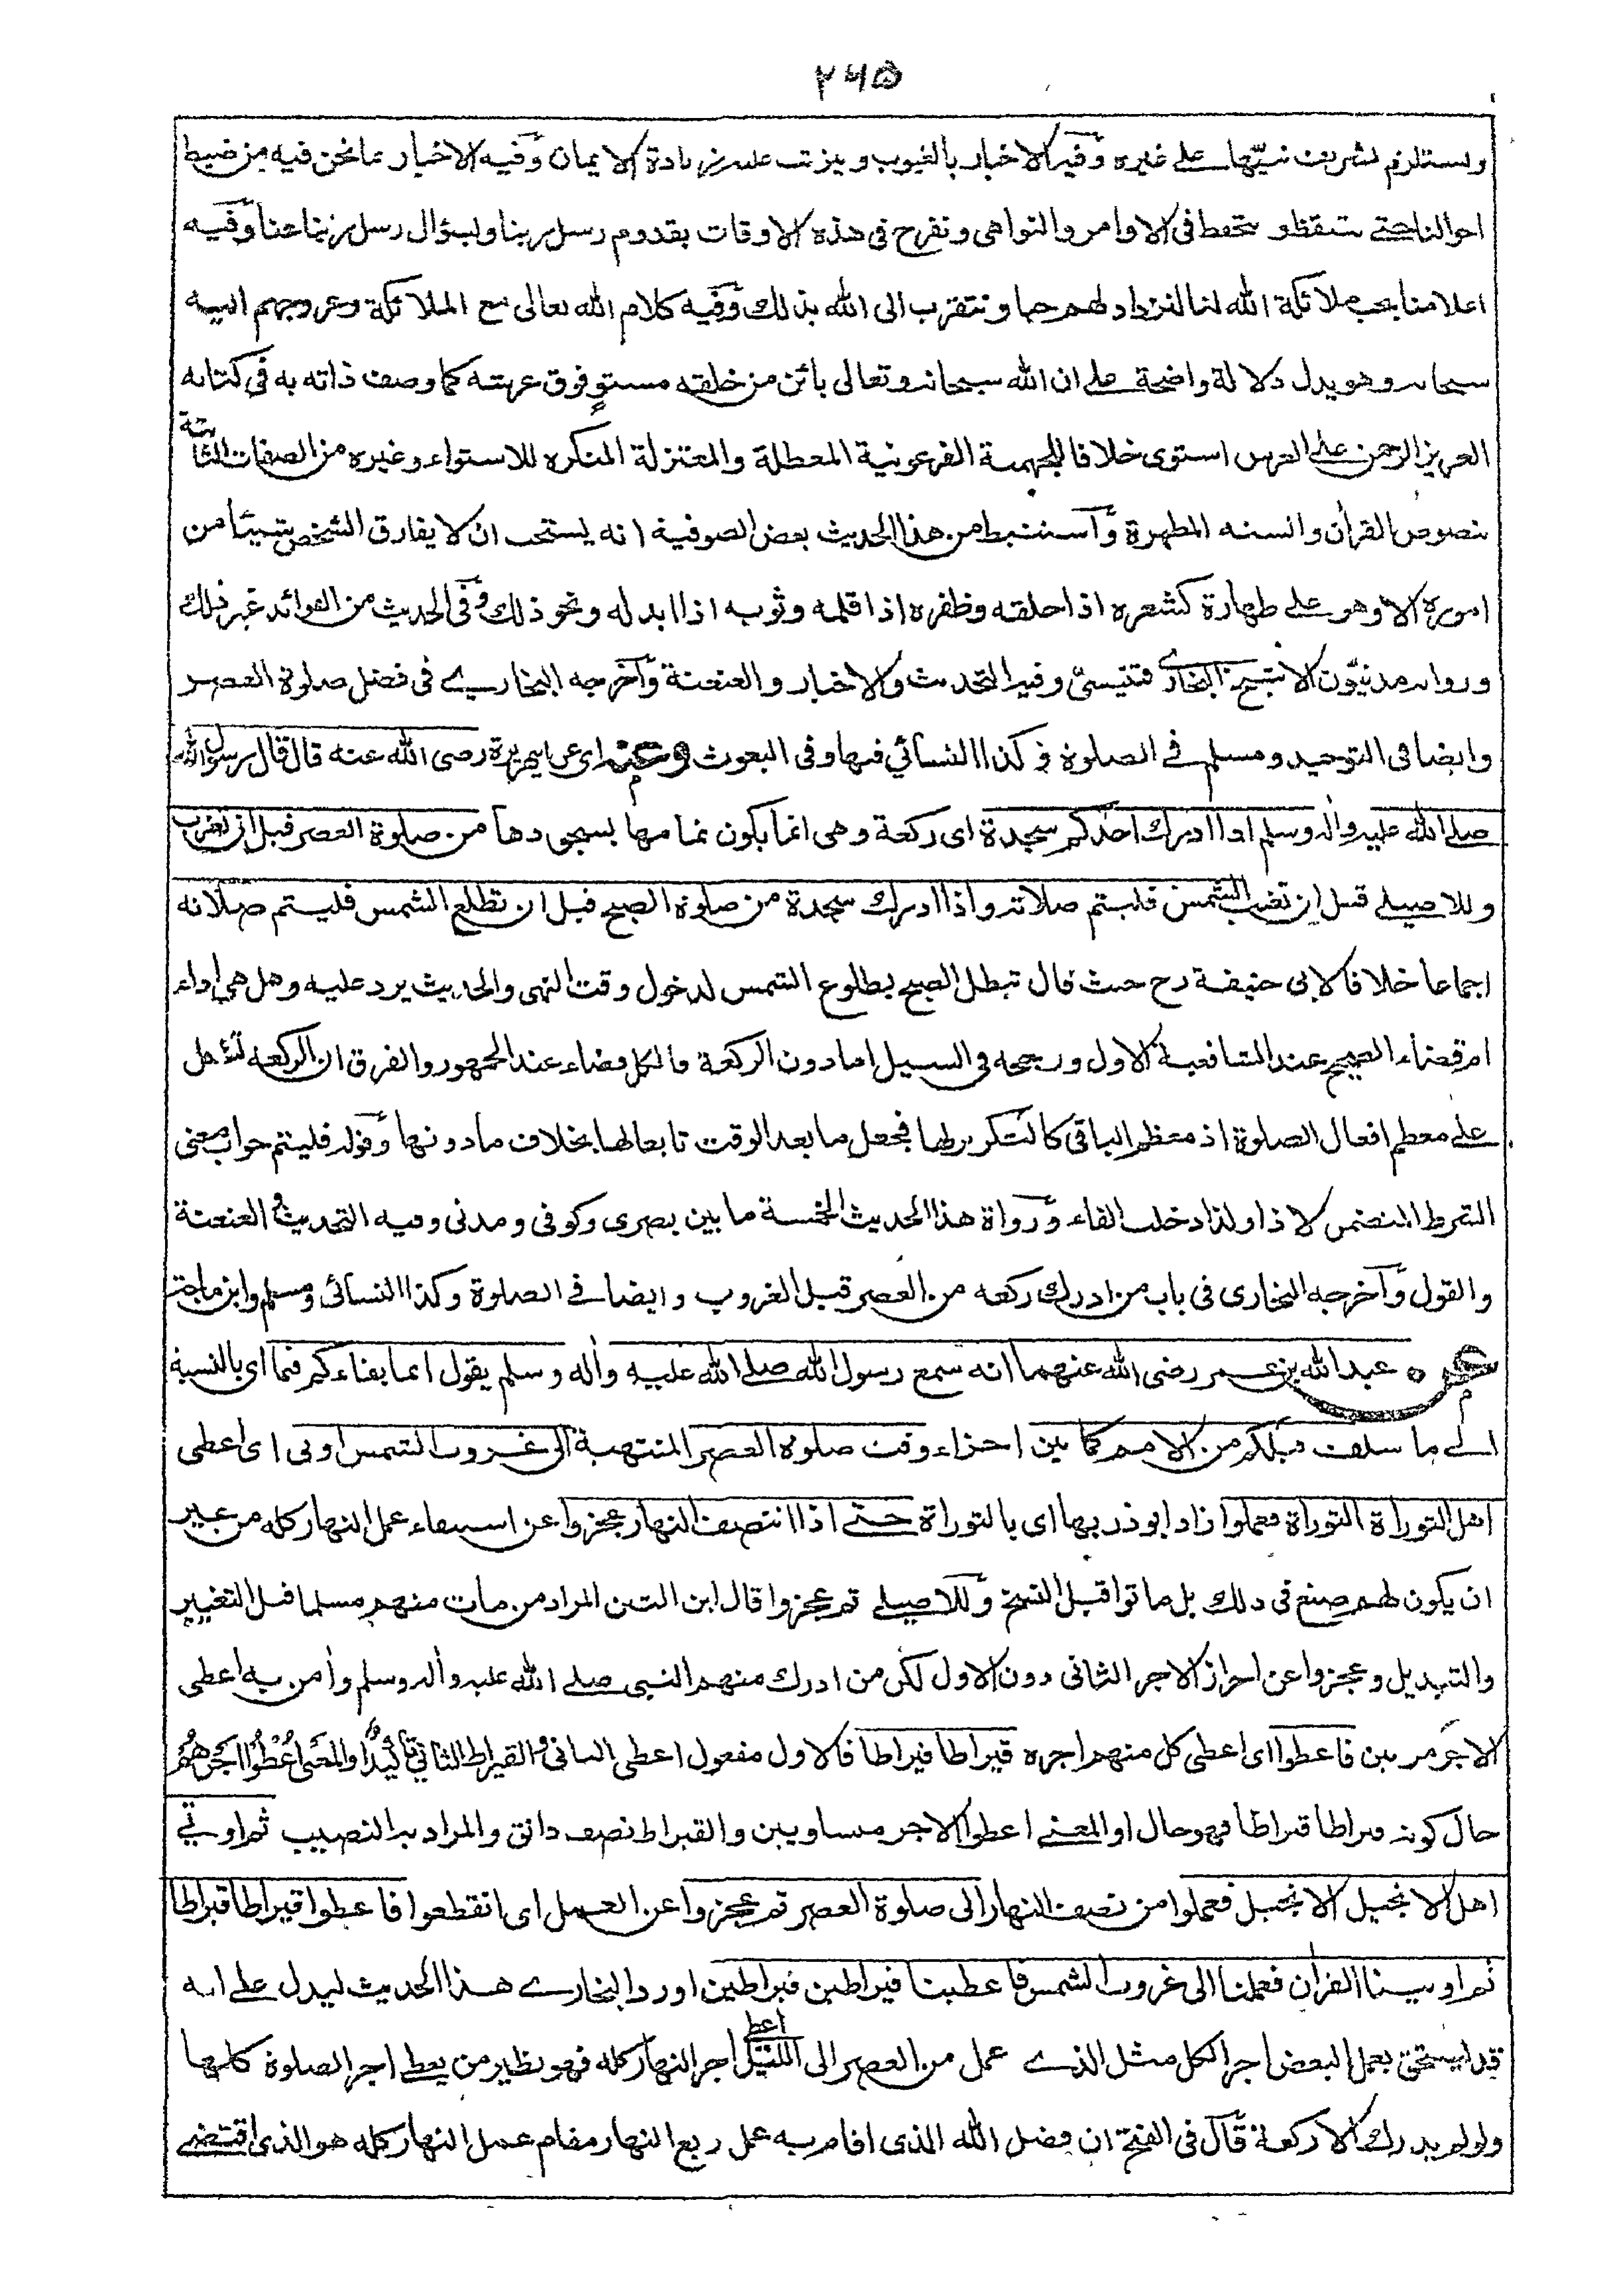 ٢٤٥
ويستلزم تشريف نبيها على غيره وفيه الاخبار بالغيوب ويترتب عليه زيادة الايمان وفيه الاخبار عما نحن فيه من ضبط
احوالنا حتى نتيقظ و نتحفظ فى الاوامر والنواهى ونفرح فى هذه الاوقات بقدوم رسل ربنا ولسؤال رسل ربنا عنا وفيه
اعلامنا بحب ملائكة الله لنا لنزداد لهم حبا ونتقرب الى الله بذلك وفيه كلام الله تعالى مع الملائكة وعروجهم اليه
سبحانه وهو يدل دلالة واضحة على ان الله سبحانه وتعالى بائن من خلقه مستوٍ فوق عرشه كما وصف ذاته به فى كتابه
العزيز الرحمن على العرش استوى خلافا للجهمية الفرعونية المعطلة والمعتزلة المنكره للاستواء وغيره من الصفات الثابتة
بنصوص القرأن والسنه المطهرة وآستنبط من هذا الحديث بعض الصوفية انه يستحب ان لا يفارق الشخص شيئا من
اموره الا وهو على طهارة كشعره اذا حلقه وظفره اذا قلمه وثوبه اذا ابدله ونحو ذلك وفى الحديث من الفوائد غير ذلك
ورواته مدنيون الا شيخ البخارى فتنيسىّ وفيه التحديث والاخبار والعنعنة وآخرجه البخارى فى فضل صلوة العصر
وايضا فى التوحيد ومسلم فى الصلوة وكذا النسائي فيها وفى البعوث وعنه اى عن ابى هريرة رضى الله عنه قال قال رسول الله
صلى الله عليه وأله وسلم اذا ادرك احدكم سجدة اى ركعة وهى انما يكون تمامها بسجودها من صلوة العصر قبل ان تغرب
وللاصيلى قبل ان تغرب الشمس فليتم صلاته واذا ادرك سجدة من صلوة الصبح قبل ان تطلع الشمس فليتم صلاته
اجماعا خلافا لابى حنيفة رح حيث قال تبطل الصبح بطلوع الشمس لدخول وقت النهى والحديث يرد عليه وهل هى اداء
ام قضاء الصحيح عند الشافعية الاول ورجحه فى السيل اما دون الركعة فالكل قضاء عند الجمهور والفرق ان الركعه تشتمل
على معظم افعال الصلوة اذ معظم الباقى كالتكرير لها فجعل ما بعد الوقت تابعا لها بخلاف ما دونها وقوله فليتم جواب معنى
الشرط المتضمن لاذا ولذا دخلت الفاء ورواة هذا الحديث الخمسة ما بين بصرى وكوفى ومدنى وفيه التحديث والعنعنة
والقول وآخرجه البخارى فى باب من ادرك ركعه من العصر قبل الغروب وايضا فى الصلوة وكذا النسائى ومسلم وابن ماجة
عن عبد الله بن عمر رضى الله عنهما انه سمع رسول الله صلى الله عليه وأله وسلم يقول انما بقاءكم فيما اى بالنسبة
الى ما سلف قبلكم من الامم كما بين اجزاء وقت صلوة العصر المنتهية الى غروب الشمس اوتى اى اعطى
اهل التوراة التوراة فعملوا زاد ابوذر بها اى بالتوراة حتى اذا انتصف النهار عجزوا عن استيفاء عمل النهار كله من غير
ان يكون لهم صنع فى ذلك بل ماتوا قبل النسخ وللاصيلى ثم عجزوا قال ابن التين المراد من مات منهم مسلما قبل التغيير
والتبديل وعجزوا عن احراز الاجر الثانى دون الاول لكن من ادرك منهم النبى صلى الله عليه وأله وسلم وأمن به اعطى
الاجر مرتين فاعطوا اى اعطى كل منهم اجره قيراطا قيراطا فالاول مفعول اعطى الثانى والقيراط الثانى تأكيد او المعنى اعطوا اجرهم
حال كونه قيراطا قيراطا فهو حال او المعنى اعطوا الاجر متساويين والقيراط نصف دانق والمراد به النصيب ثم اوتى
اهل الانجيل الانجيل فعملوا من نصف النهار الى صلوة العصر ثم عجزوا عن العمل اى انقطعوا فاعطوا قيراطا قيراطا
ثم اوتينا القرأن فعملنا الى غروب الشمس فاعطينا قيراطين قيراطين اورد البخارى هذا الحديث ليدل على انه
قد يستحق بعمل البعض اجر الكل مثل الذى عمل من العصر الى الليل اعطى اجر النهار كله فهو نظير من يعطى اجر الصلوة كلها
ولو لم يدرك الا ركعة قآل فى الفتح ان فضل الله الذى اقام به عمل ربع النهار مقام عمل النهار كله هو الذى اقتضى